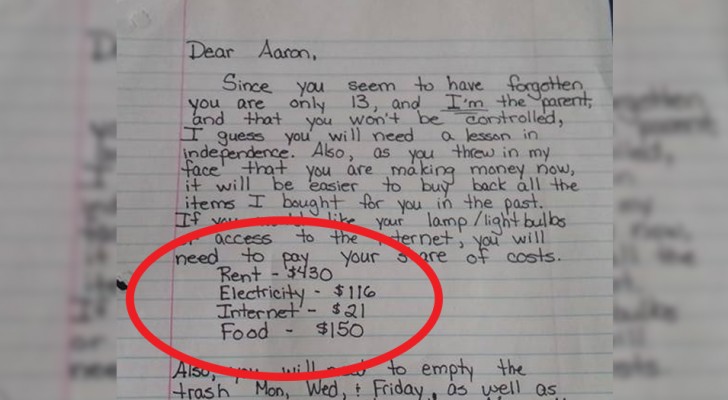 Dear Aaron,
Since you seem to have forgotten
you are only 13, and I'm the parent,
and that you won't be controlled,
I guess you will need a lesson in
independence. Also, as you threw in my
face that you are making money now,
it will be easier to buy back all the
items I bought for you in the past.
If you would like your lamp/lightbulbs
or access to the internet, you will
need to pay your share of costs.
Rent - $430
Electricity - $116
Internet - $21
Food - $150
Also, you will need to empty the
trash Mon, Wed, + Friday, as well as